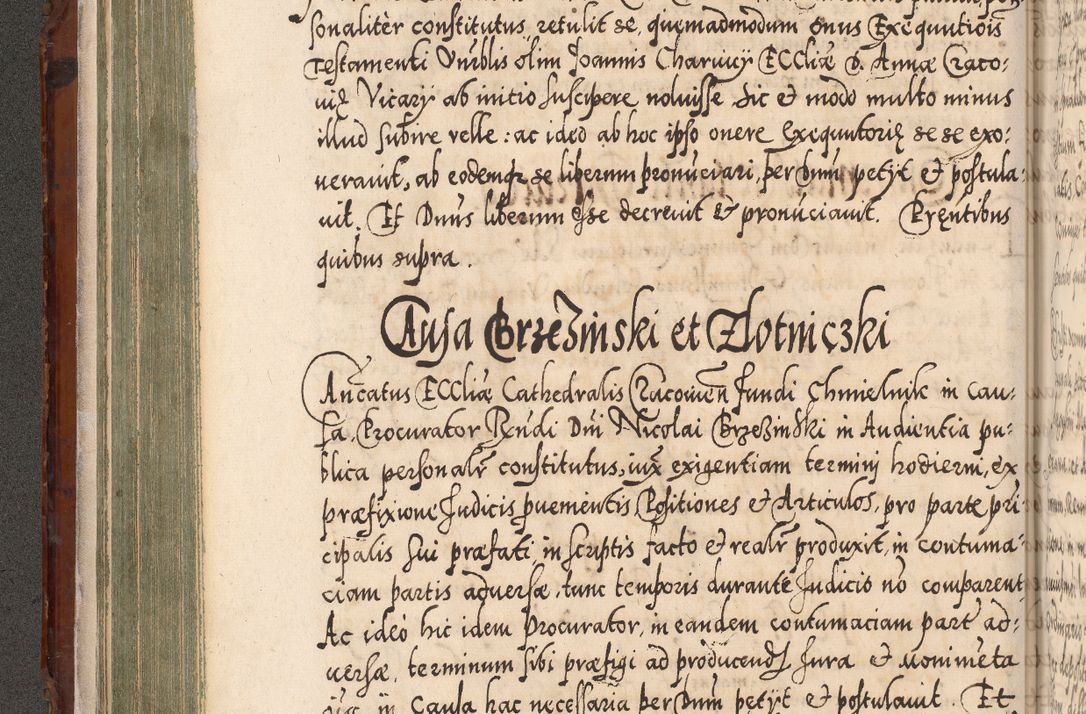 sonalitèr constitutus, retulit se, quemadmodum onus Exequutiois
Testamenti Unìblis olim Joannis Charvicÿ ECCliæ S. Annæ Craco:
vię Vicarÿ ab initio suscipere noluisse sic et modo multo minus
illud subire velle: ac ideo ab hoc ipso onere Exequutorię se se exo:
neravit, ab eodemq se liberum pronunciari, per Dnum petÿt et postula:
vit. Et Dnus liberum esse decrevit et pronunciavit. Pręntibus
quibus supra.
Causa Brzezinski et Zlotniczki
Ancatus ECCliæ Cathedralis Cracovien fundi Chmielnik in Cau:
sa, Procurator Rndi Dni Nicolai Brzezinski in Audientia pu:
blica personalr constitutus, iux exigentiam termini hodierni, ex
præfixione Judicis Positiones et Articulos, pro parte pri
cipalis sui præfati, in scriptis facto et realr produxit, in contuma:
ciam partis adversæ, tunc temporis durante Judicio no comparent
Ac ideo hic idem Procurator, in eandem contumaciam part ad:
versæ, terminum sibi præfigi ad producend Jura et monimeta
in Causa hac necessaria per Dnum petÿt et postulavit. Et